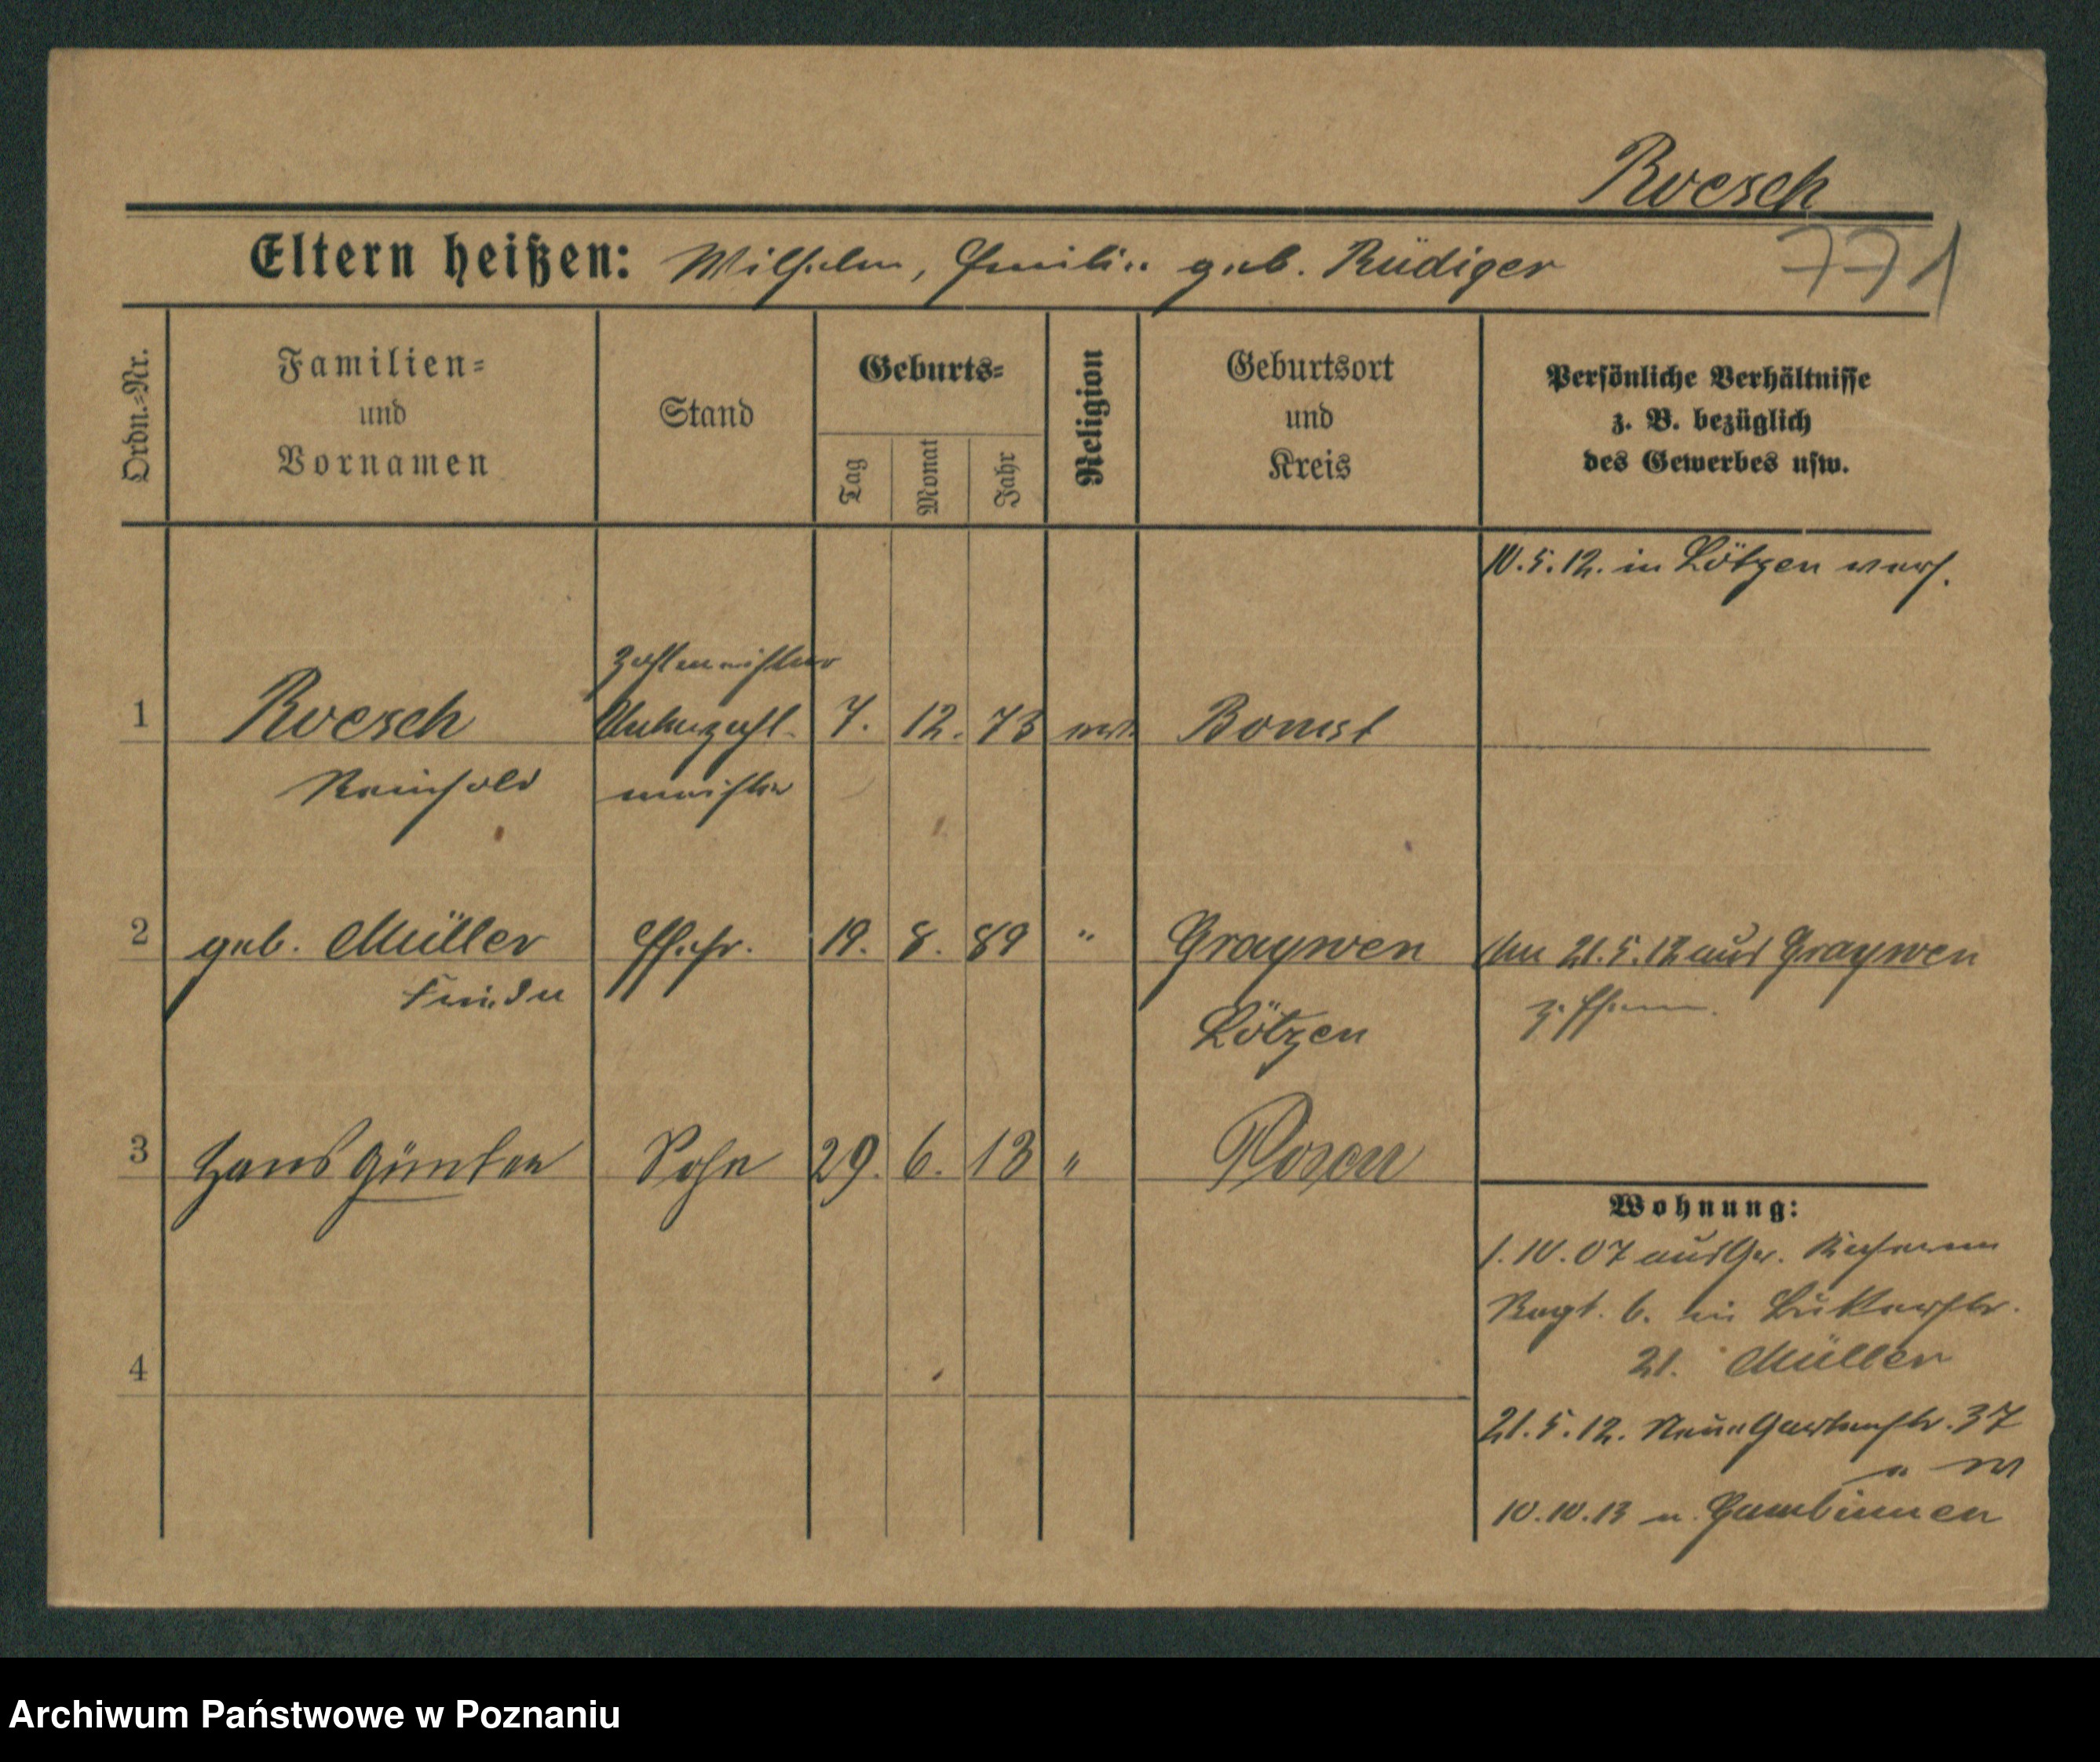 Roesch
Eltern heißen: Wilhelm, Emilie geb. Rüdiger
771
Ordn.=Nr.
Familien=
und
Vornamen
Stand
Geburts=
Tag
Monat
Jahr
Religion
Geburtsort
und
Kreis
Persönliche Verhältnisse
z. B. bezüglich
des Gewerbes usw.
10.5.12. in Lötzen verh.
Zahlmeister
1 Roesch Unterzahl- 7. 12. 73 Bomst
Reinhold meister
2 geb. Müller Ehefr. 19. 8. 89 " Graywen An 21.5.12 aus Graywen
Frieda z. Ehem.
Lötzen
3 Hans Günter Sohn 29. 6. 13 " Posen
Wohnung:
1.10.07 aus Gr. Kaserne
Regt. 6. in
21. Müller
4
21.5.12. Neue Gartenstr. 37
10.10.13 n. Gumbinnen
Archiwum Państwowe w Poznaniu